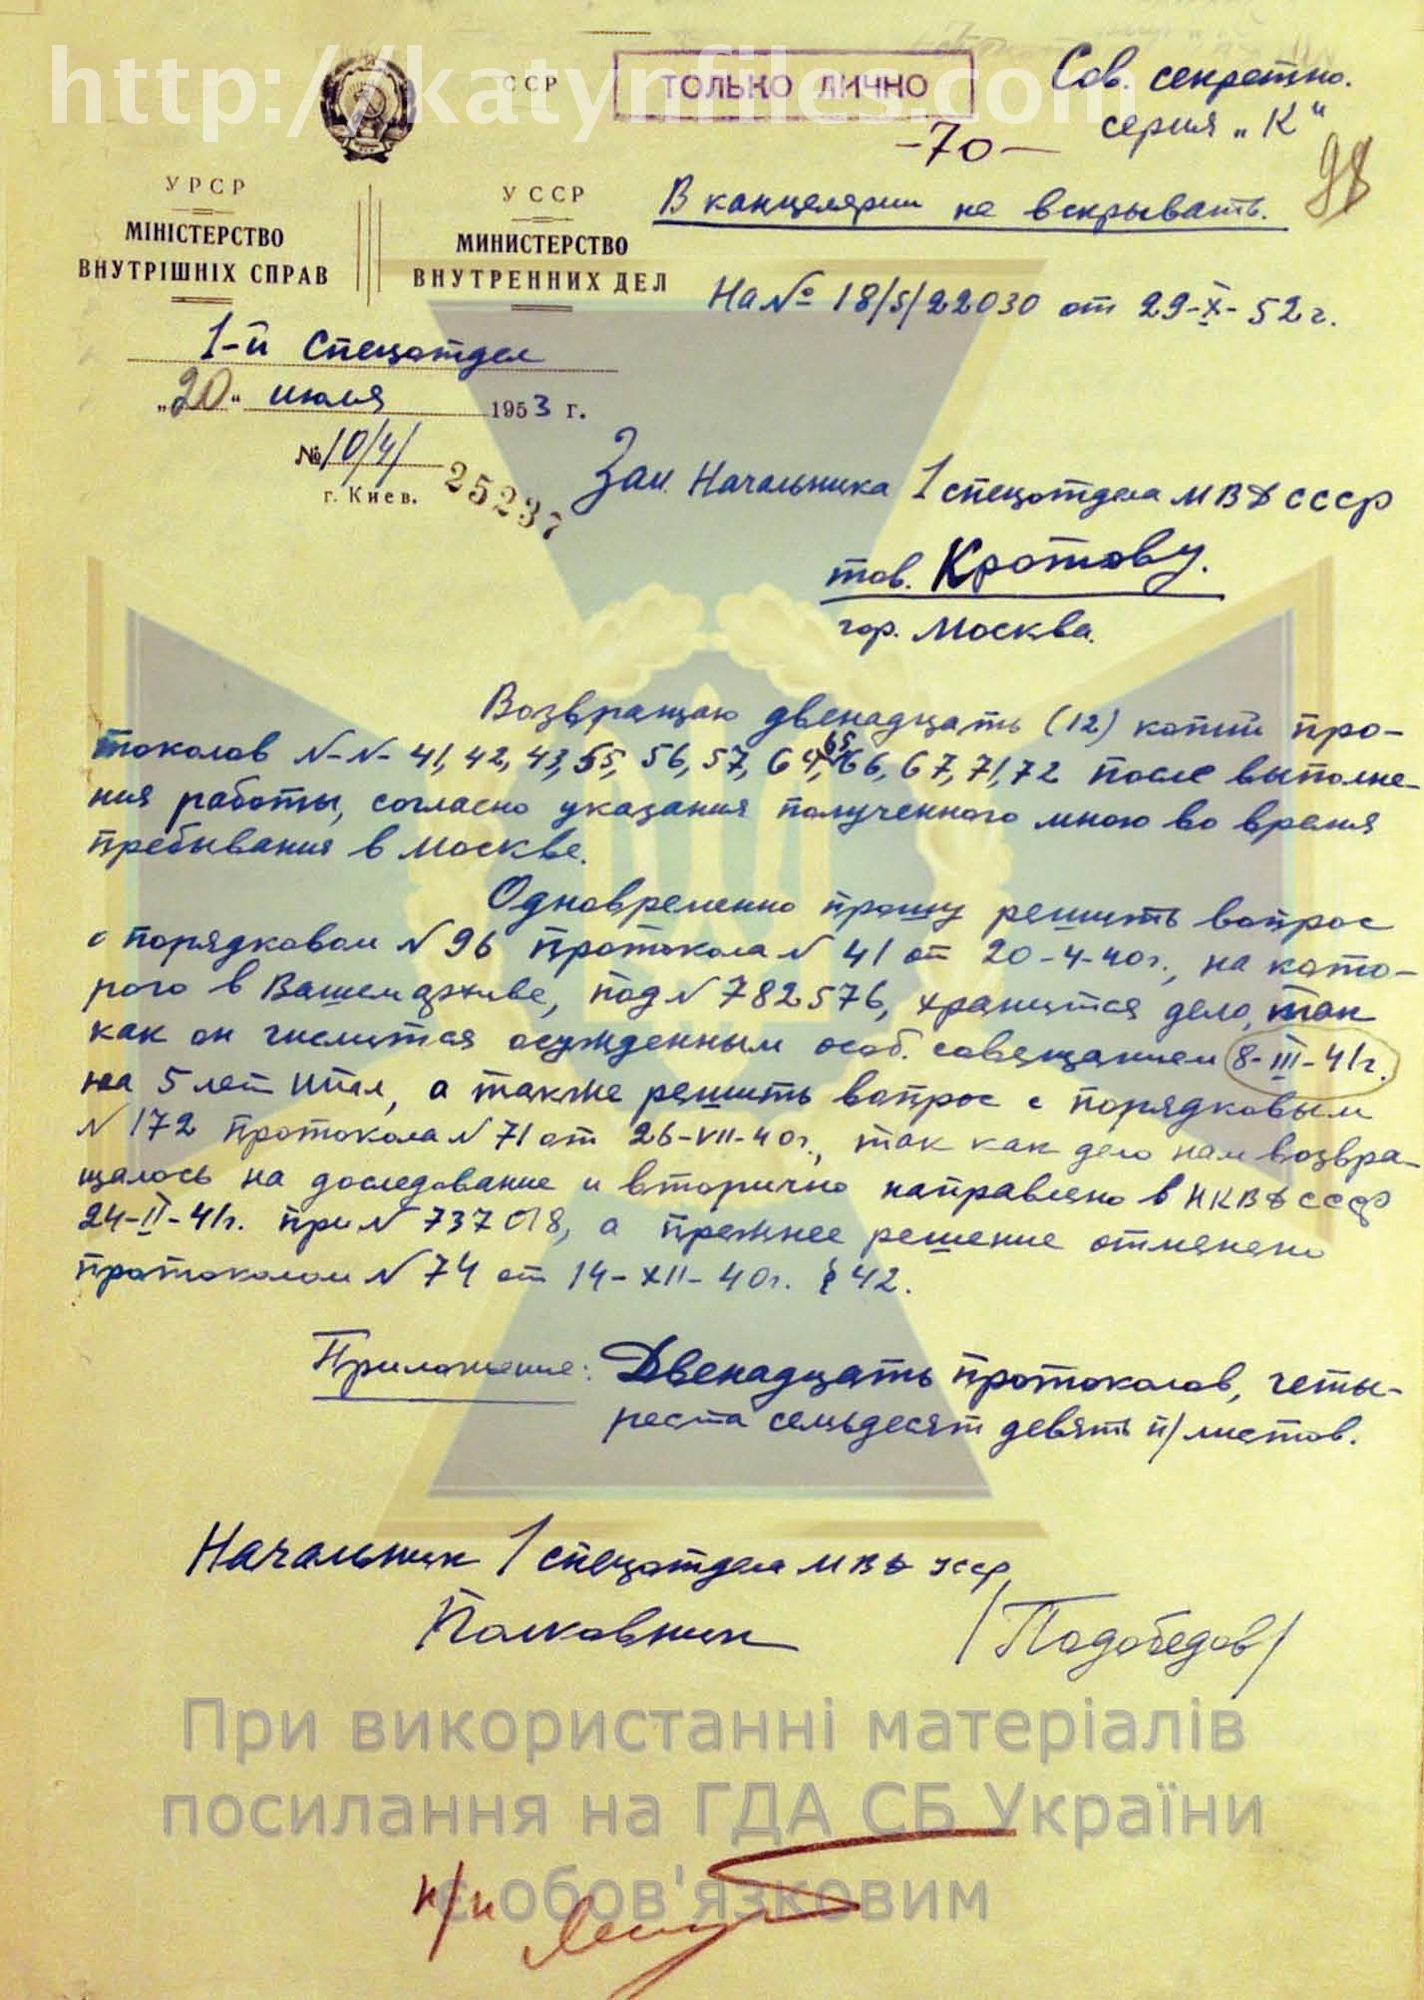 http://katynfiles.com
ССР
ТОЛЬКО ЛИЧНО
Сов. секретно.
серия „К"
-70-
98
В канцелярии не вскрывать.
УРСР
МІНІСТЕРСТВО
ВНУТРІШНІХ СПРАВ
УССР
МИНИСТЕРСТВО
ВНУТРЕННИХ ДЕЛ
На № 18/5/22030 от 29-X-52г.
1-й Спецотдел
„20" июля 1953 г.
№ 10/4/ 25237
г. Киев.
Зам. Начальника 1 спецотдела МВД СССР
тов. Кротову.
гор. Москва.
Возвращаю двенадцать (12) копий про-
токолов N-N- 41, 42, 43, 55, 56, 57, 64, 65, 66, 67, 71, 72 после выполне-
ния работы, согласно указания полученного мною во время
пребывания в Москве.
Одновременно прошу решить вопрос
с порядковом N 96 протокола N 41 от 20-4-40г., на кото-
рого в Вашем архиве, под N 782576, хранится дело, так
как он числится осужденным особ. совещанием 8-III-41г.
на 5 лет ИТЛ, а также решить вопрос с порядковым
N 172 протокола N 71 от 26-VII-40г., так как дело нам возвра-
щалось на доследование и вторично направлено в НКВД СССР
24-II-41г. при N 737018, а прежнее решение отменено
протоколом N 74 от 14-XII-40г. § 42.
Приложение: Двенадцать протоколов, четы-
реста семьдесят девять п/листов.
Начальник 1 спецотдела МВД УССР
Полковник /Подобедов/
При використанні матеріалів
посилання на ГДА СБ України
є обов'язковим
н/н